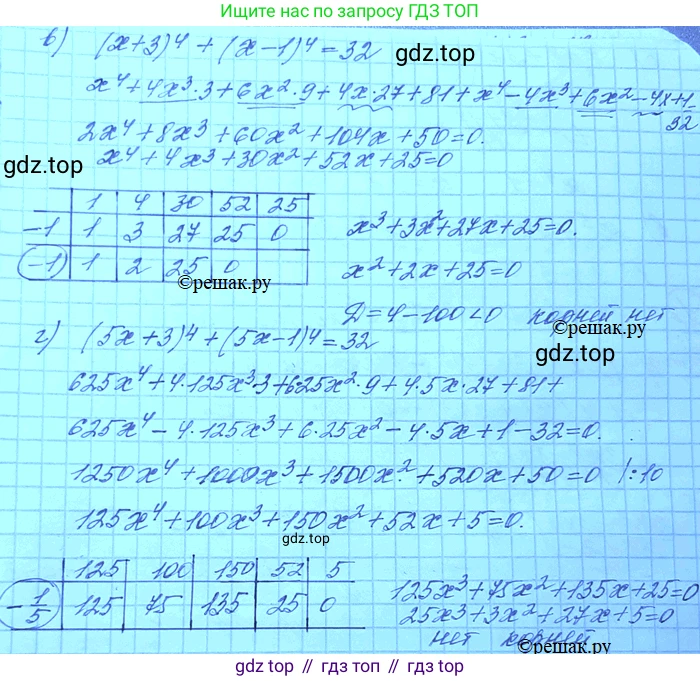 Ищите нас по запросу ГДЗ ТОП
в) (x+3)⁴ + (x−1)⁴ = 32
x⁴ + 4x³·3 + 6x²·9 + 4x·27 + 81 + x⁴ − 4x³ + 6x² − 4x + 1
32
2x⁴ + 8x³ + 60x² + 104x + 50 = 0.
x⁴ + 4x³ + 30x² + 52x + 25 = 0
gdz.top
gdz.top
1 4 30 52 25
−1 1 3 27 25 0
x³ + 3x² + 27x + 25 = 0.
−1 1 2 25 0
x² + 2x + 25 = 0
©решак.ру
Д = 4 − 100 < 0 корней нет
©решак.ру
г) (5x+3)⁴ + (5x−1)⁴ = 32
gdz.top
625x⁴ + 4·125x³·3 + 6·25x²·9 + 4·5x·27 + 81 +
625x⁴ − 4·125x³ + 6·25x² − 4·5x + 1 − 32 = 0.
1250x⁴ + 1000x³ + 1500x² + 520x + 50 = 0 |:10
125x⁴ + 100x³ + 150x² + 52x + 5 = 0.
gdz.top
125 100 150 52 5
−1/5 125 75 135 25 0
125x³ + 75x² + 135x + 25 = 0
25x³ + 3x² + 27x + 5 = 0
нет корней
©решак.ру
gdz.top // гдз топ // gdz.top // гдз топ // gdz.top